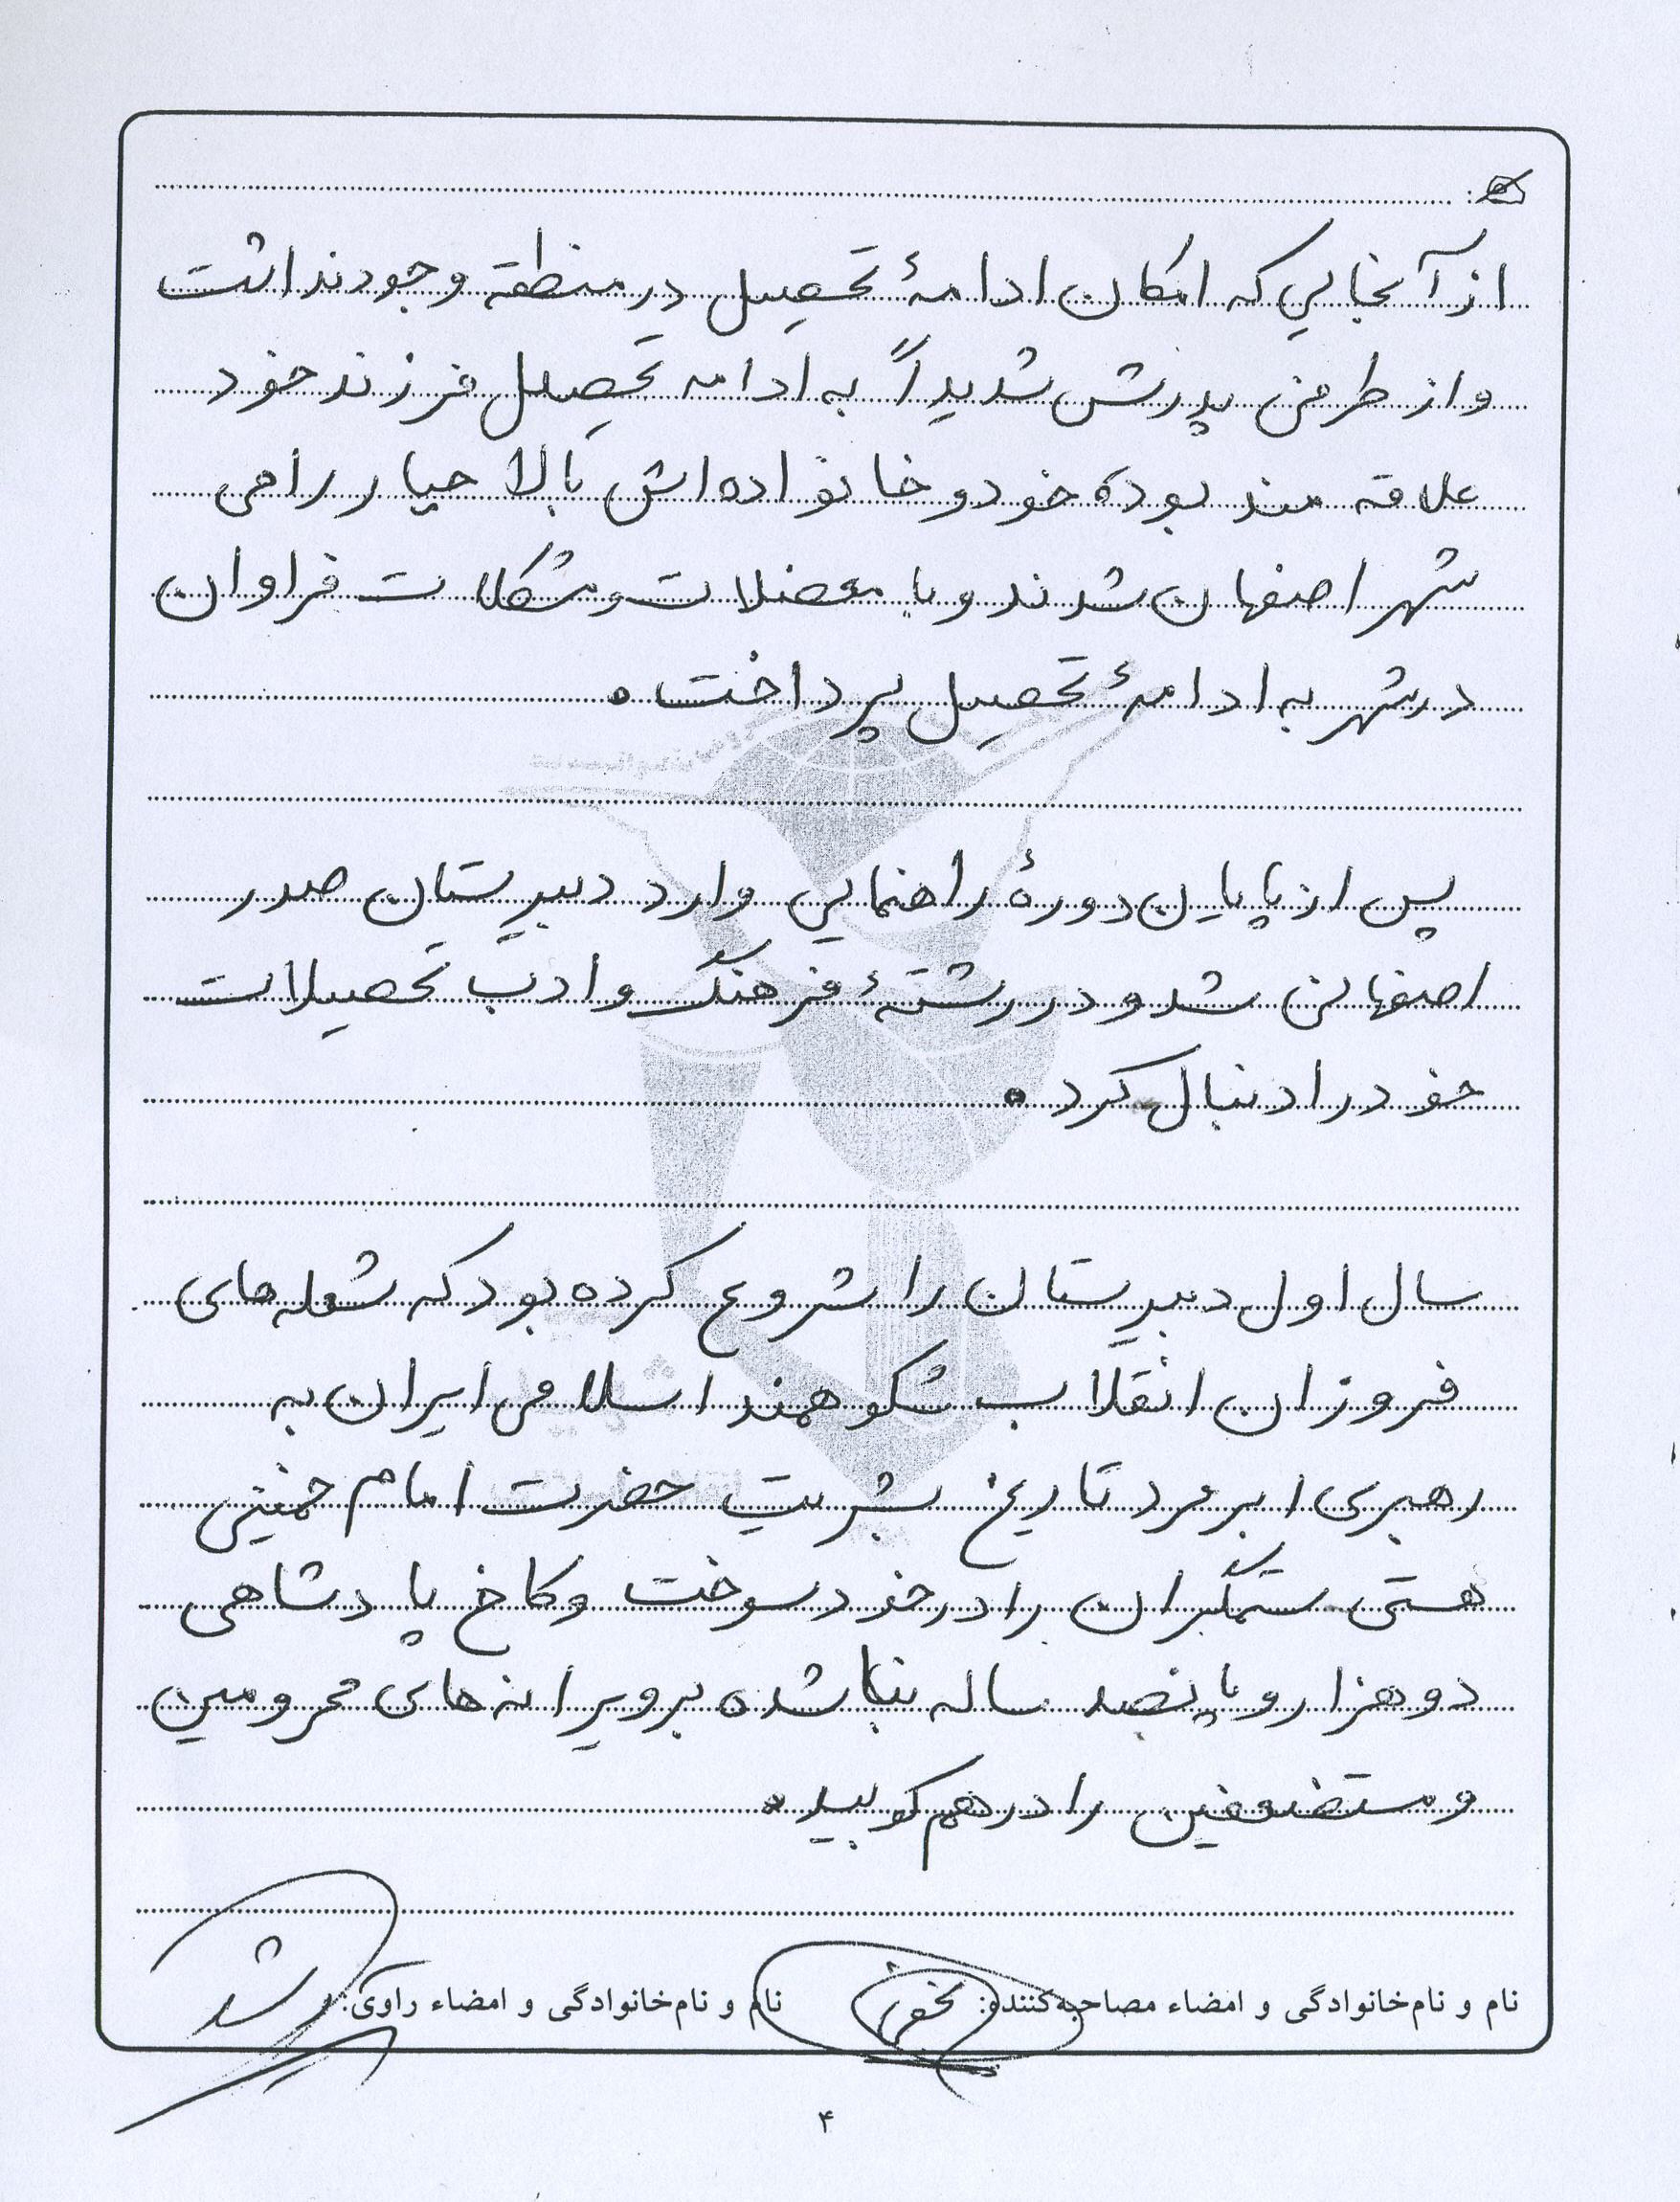 از آنجایی که امکان ادامهٔ تحصیل در منطقه وجود نداشت
و از طرفی پدرش شدیداً به ادامه تحصیل فرزند خود
علاقه مند بوده خود و خانواده اش بالاجبار راهی
شهر اصفهان شدند و با معضلات و مشکلات فراوان
در شهر به ادامهٔ تحصیل پرداخت.
پس از پایان دورهٔ راهنمایی وارد دبیرستان صدر
اصفهانی شد و در رشتهٔ فرهنگ و ادب تحصیلات
خود را دنبال کرد.
سال اول دبیرستان را شروع کرده بود که شعله های
فروزان انقلاب شکوهمند اسلامی ایران به
رهبری ابر مرد تاریخ بشریت حضرت امام خمینی
هستی ستمگران را در خود سوخت و کاخ پادشاهی
دو هزار و پانصد ساله بنا شده بر ویرانه های محرومین
و مستضعفین را در هم کوبید.
نام و نام‌خانوادگی و امضاء مصاحبه‌کننده: نام و نام‌خانوادگی و امضاء راوی:
۴